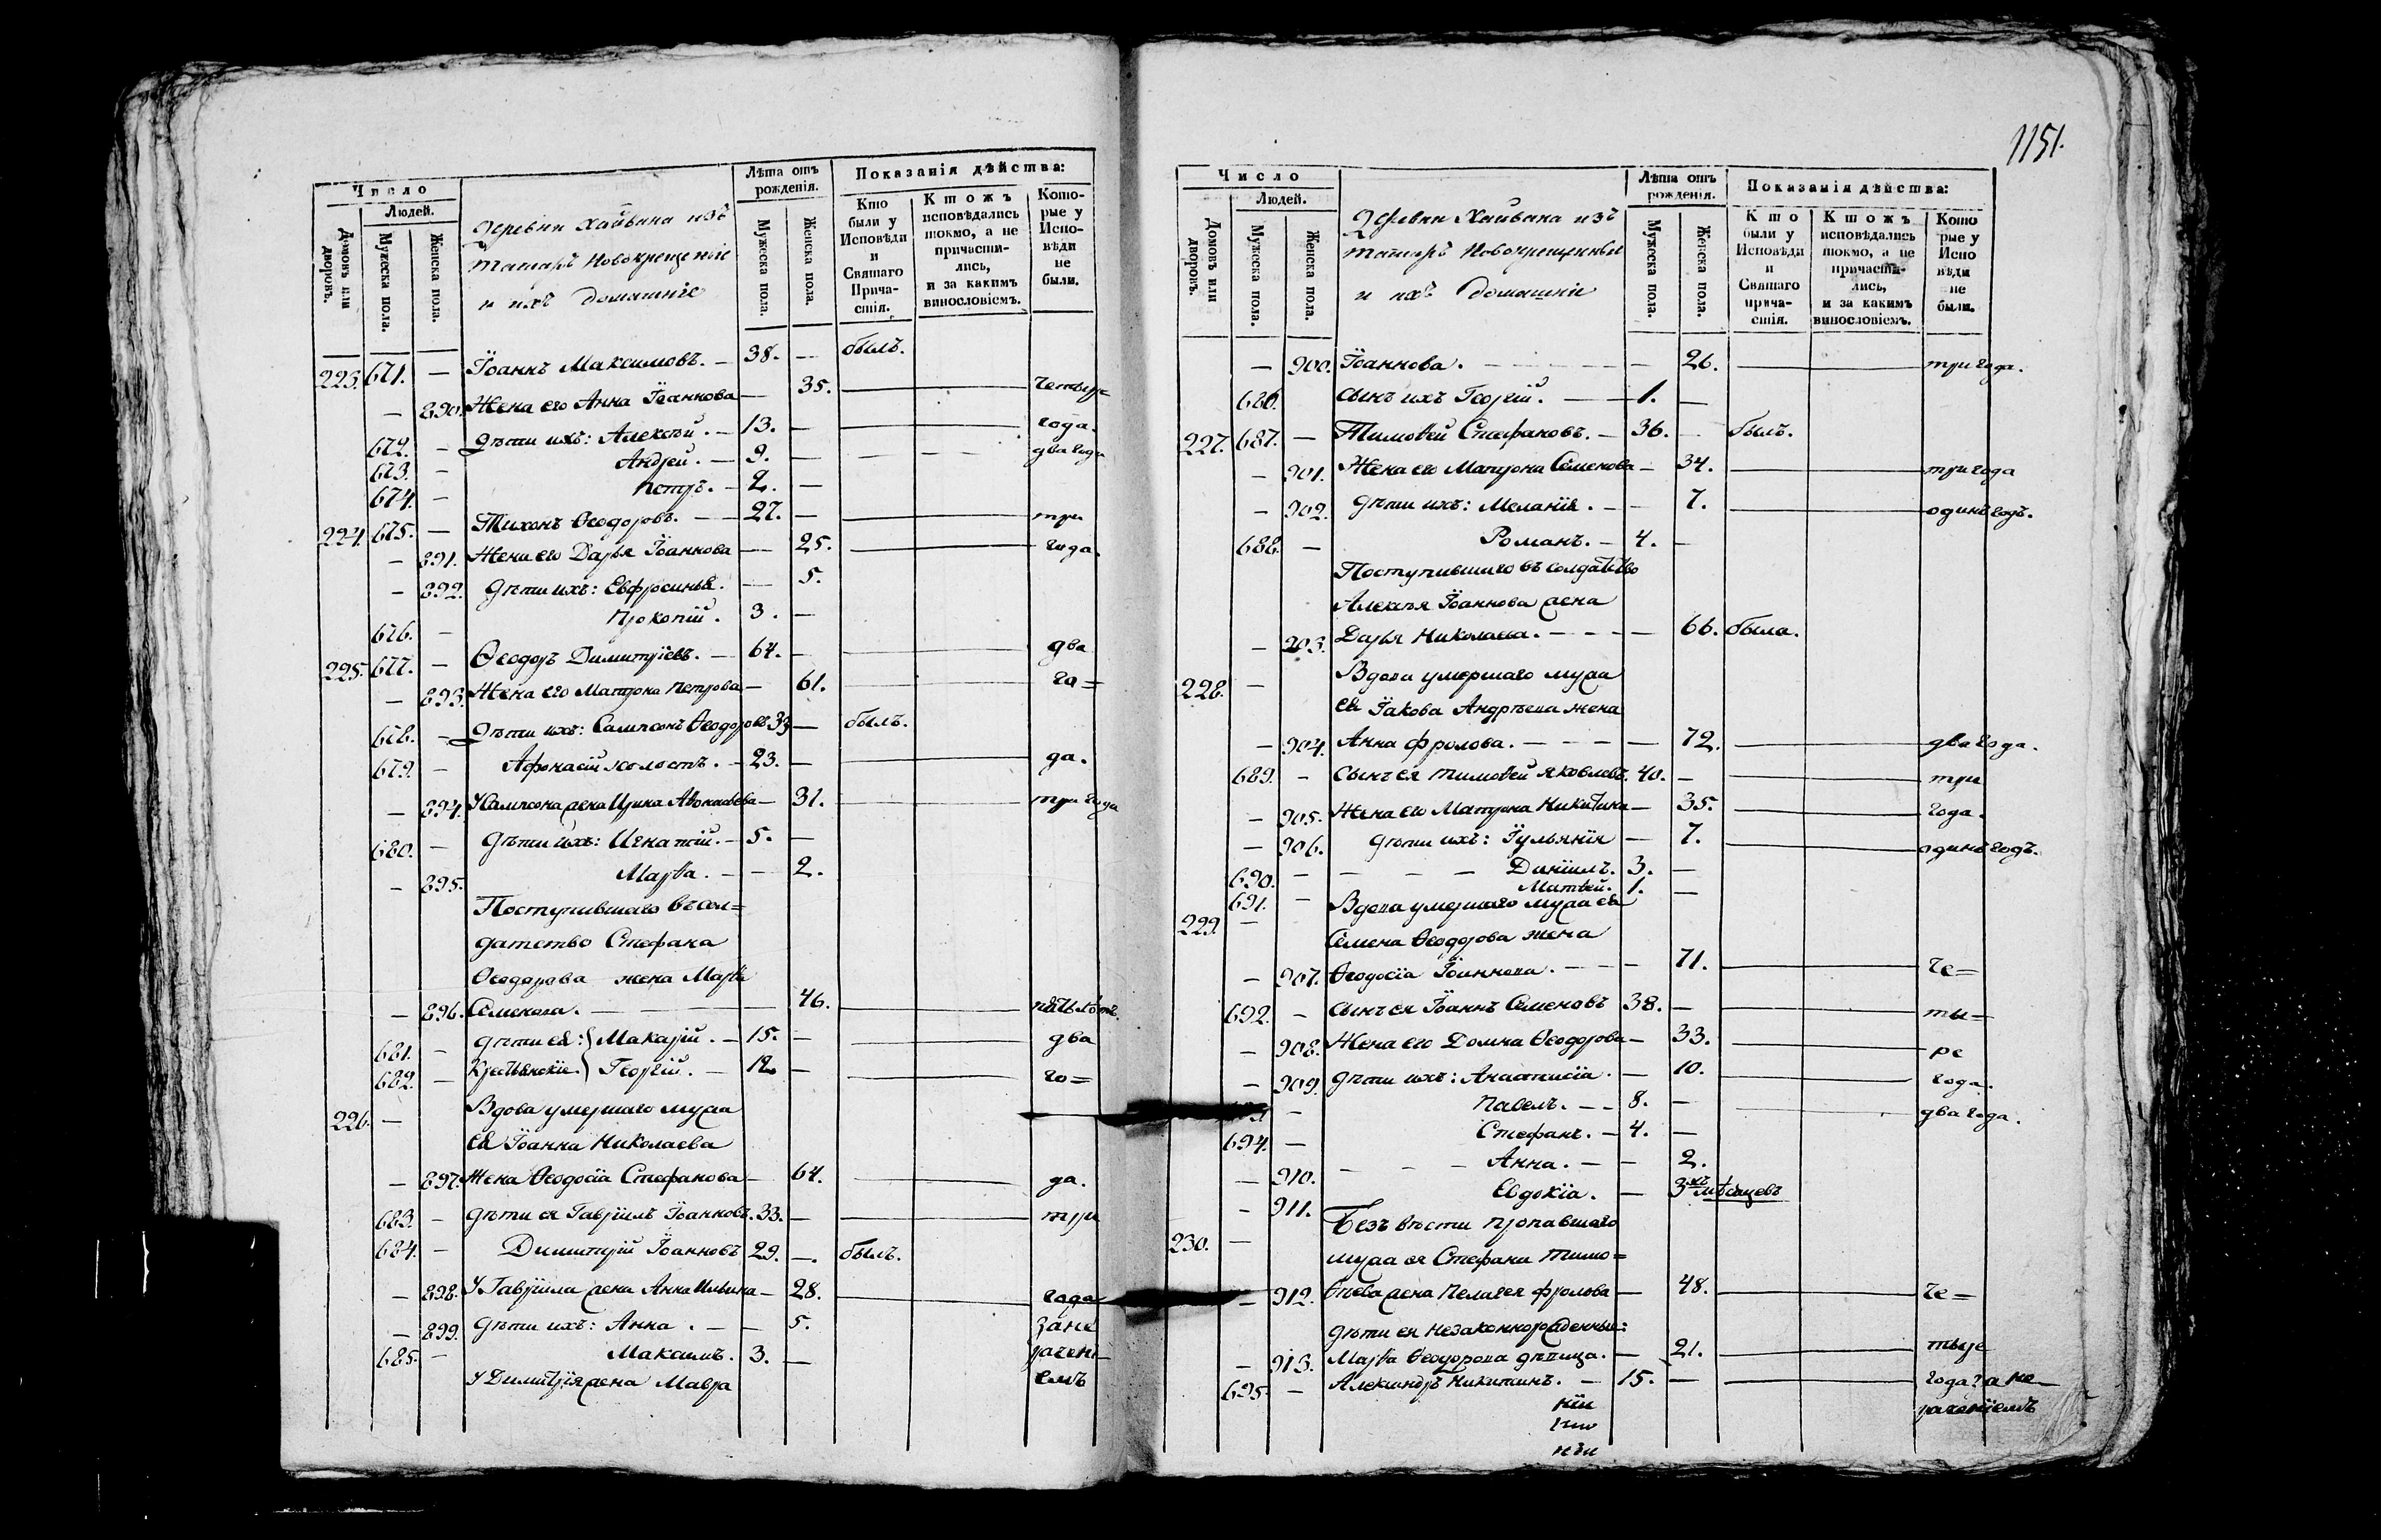 1151.
Число
Людей.
Домовъ или дворовъ.
Мужеска пола.
Женска пола.
Деревни Хайвана изъ
татаръ новокрещеные
и ихъ домашніе
Лѣта отъ рожденія.
Мужеска пола.
Женска пола.
Показанія дѣйства:
Кто были у Исповѣди и Святаго Прича-стія.
Ктожъ исповѣдались токмо, а не причасти-лись, и за какимъ винословіемъ.
Кото-рые у Испо-вѣди не были.
223. 671. — Іоаннъ Максимовъ. — 38. — былъ.
— 890. Жена его Анна Іоаннова — 35. четыре
672. — Дѣти ихъ: Алексѣй. — 13. — года.
673. — Андрей. — 9. — два года
674. — Петръ. — 2. —
224. 675. — Тихонъ Ѳеодоровъ. — 27. — три
— 891. Жена его Дарья Іоаннова — 25. года.
— 892. Дѣти ихъ: Евфросинья. — 5.
676. — Прокопій. 3. —
225. 677. — Ѳеодоръ Димитріевъ. — 64. — два
— 893. Жена его Матрона Петрова — 61. го=
678. — Дѣти ихъ: Сампсонъ Ѳеодоровъ 33 — былъ.
679. — Афонасій холостъ. — 23. — да.
— 894. У Сампсона жена Ирина Аѳонасьева — 31. три года
680. — Дѣти ихъ: Игнатій. — 5. —
— 895. Марѳа. — — 2.
Поступившаго въ сол=
датство Стефана
Ѳеодорова жена Марѳа
— 896. Семенова. — 46. пять лѣтъ.
681. — дѣти ея: Макарій. — 15. — два
682. — Крестьянскіе. Георгій. — 12 — го=
226. — Вдова умершаго мужа
ея Іоанна Николаева
— 897. Жена Ѳеодосія Стефанова — 64. да.
683. — Дѣти ея Гавріилъ Іоанновъ. 33. — три
684. — Димитрій Іоанновъ 29. — былъ.
— 898. У Гавріила жена Анна Ильина — 28. года
— 899. Дѣти ихъ: Анна. — — 5. зане
685. — Максимъ. 3. — рачені
У Димитрія жена Мавра емъ
Число
Людей.
Домовъ или дворовъ.
Мужеска пола.
Женска пола.
Деревни Хайвана изъ
татаръ новокрещенные
и ихъ домашніе
Лѣта отъ рожденія.
Мужеска пола.
Женска пола.
Показанія дѣйства:
Кто были у Исповѣди и Святаго прича-стія.
Ктожъ исповѣдались токмо, а не причасти-лись, и за какимъ винословіемъ.
Кото рые у Испо вѣди не были.
— 900. Іоаннова. — 26. три года.
686. Сынъ ихъ Георгій. — 1. —
227. 687. — Тимоѳей Стефановъ. — 36. — былъ.
— 901. Жена его Матрона Семенова — 34. три года
— 902. Дѣти ихъ: Меланія. — — 7. одинъ годъ.
688. — Романъ. — 4. —
Поступившаго въ солдатство
Алексѣя Іоаннова жена
— 903. Дарья Николаева. — 66. была.
228. — Вдова умершаго мужа
ея Іакова Андрѣева жена
— 904. Анна Фролова. — 72. два года.
689. — Сынъ ея Тимоѳей Яковлевъ. 40. — три
— 905. Жена его Матрона Никитина — 35. года.
— 906. Дѣти ихъ: Іульянія — 7. одинъ годъ.
690. — Даніилъ. 3. —
691. — Матвей. 1. —
229. — Вдова умершаго мужа ея
Семена Ѳеодорова жена
— 907. Ѳеодосія Іоаннова. — 71. че=
692. — Сынъ ея Іоаннъ Семеновъ 38. — ты=
— 908. Жена его Домна Ѳеодорова — 33. ре
— 909. Дѣти ихъ: Анастасія. — 10. года.
— Павелъ. — 8. — два года.
694. — Стефанъ. — 4. —
— 910. Анна. — — 2.
— 911. Евдокія. — 3хъ мѣсяцевъ
230. — Безъ вѣсти пропавшаго
мужа ея Стефана Тимо=
— 912. ѳѣева жена Пелагея Фролова — 48. че=
Дѣти ея незаконнорожденные:
— 913. Марѳа Ѳеодорова дѣвица. — 21. тыре
695. — Александръ Никитинъ. — 15. — года за не
раченіемъ